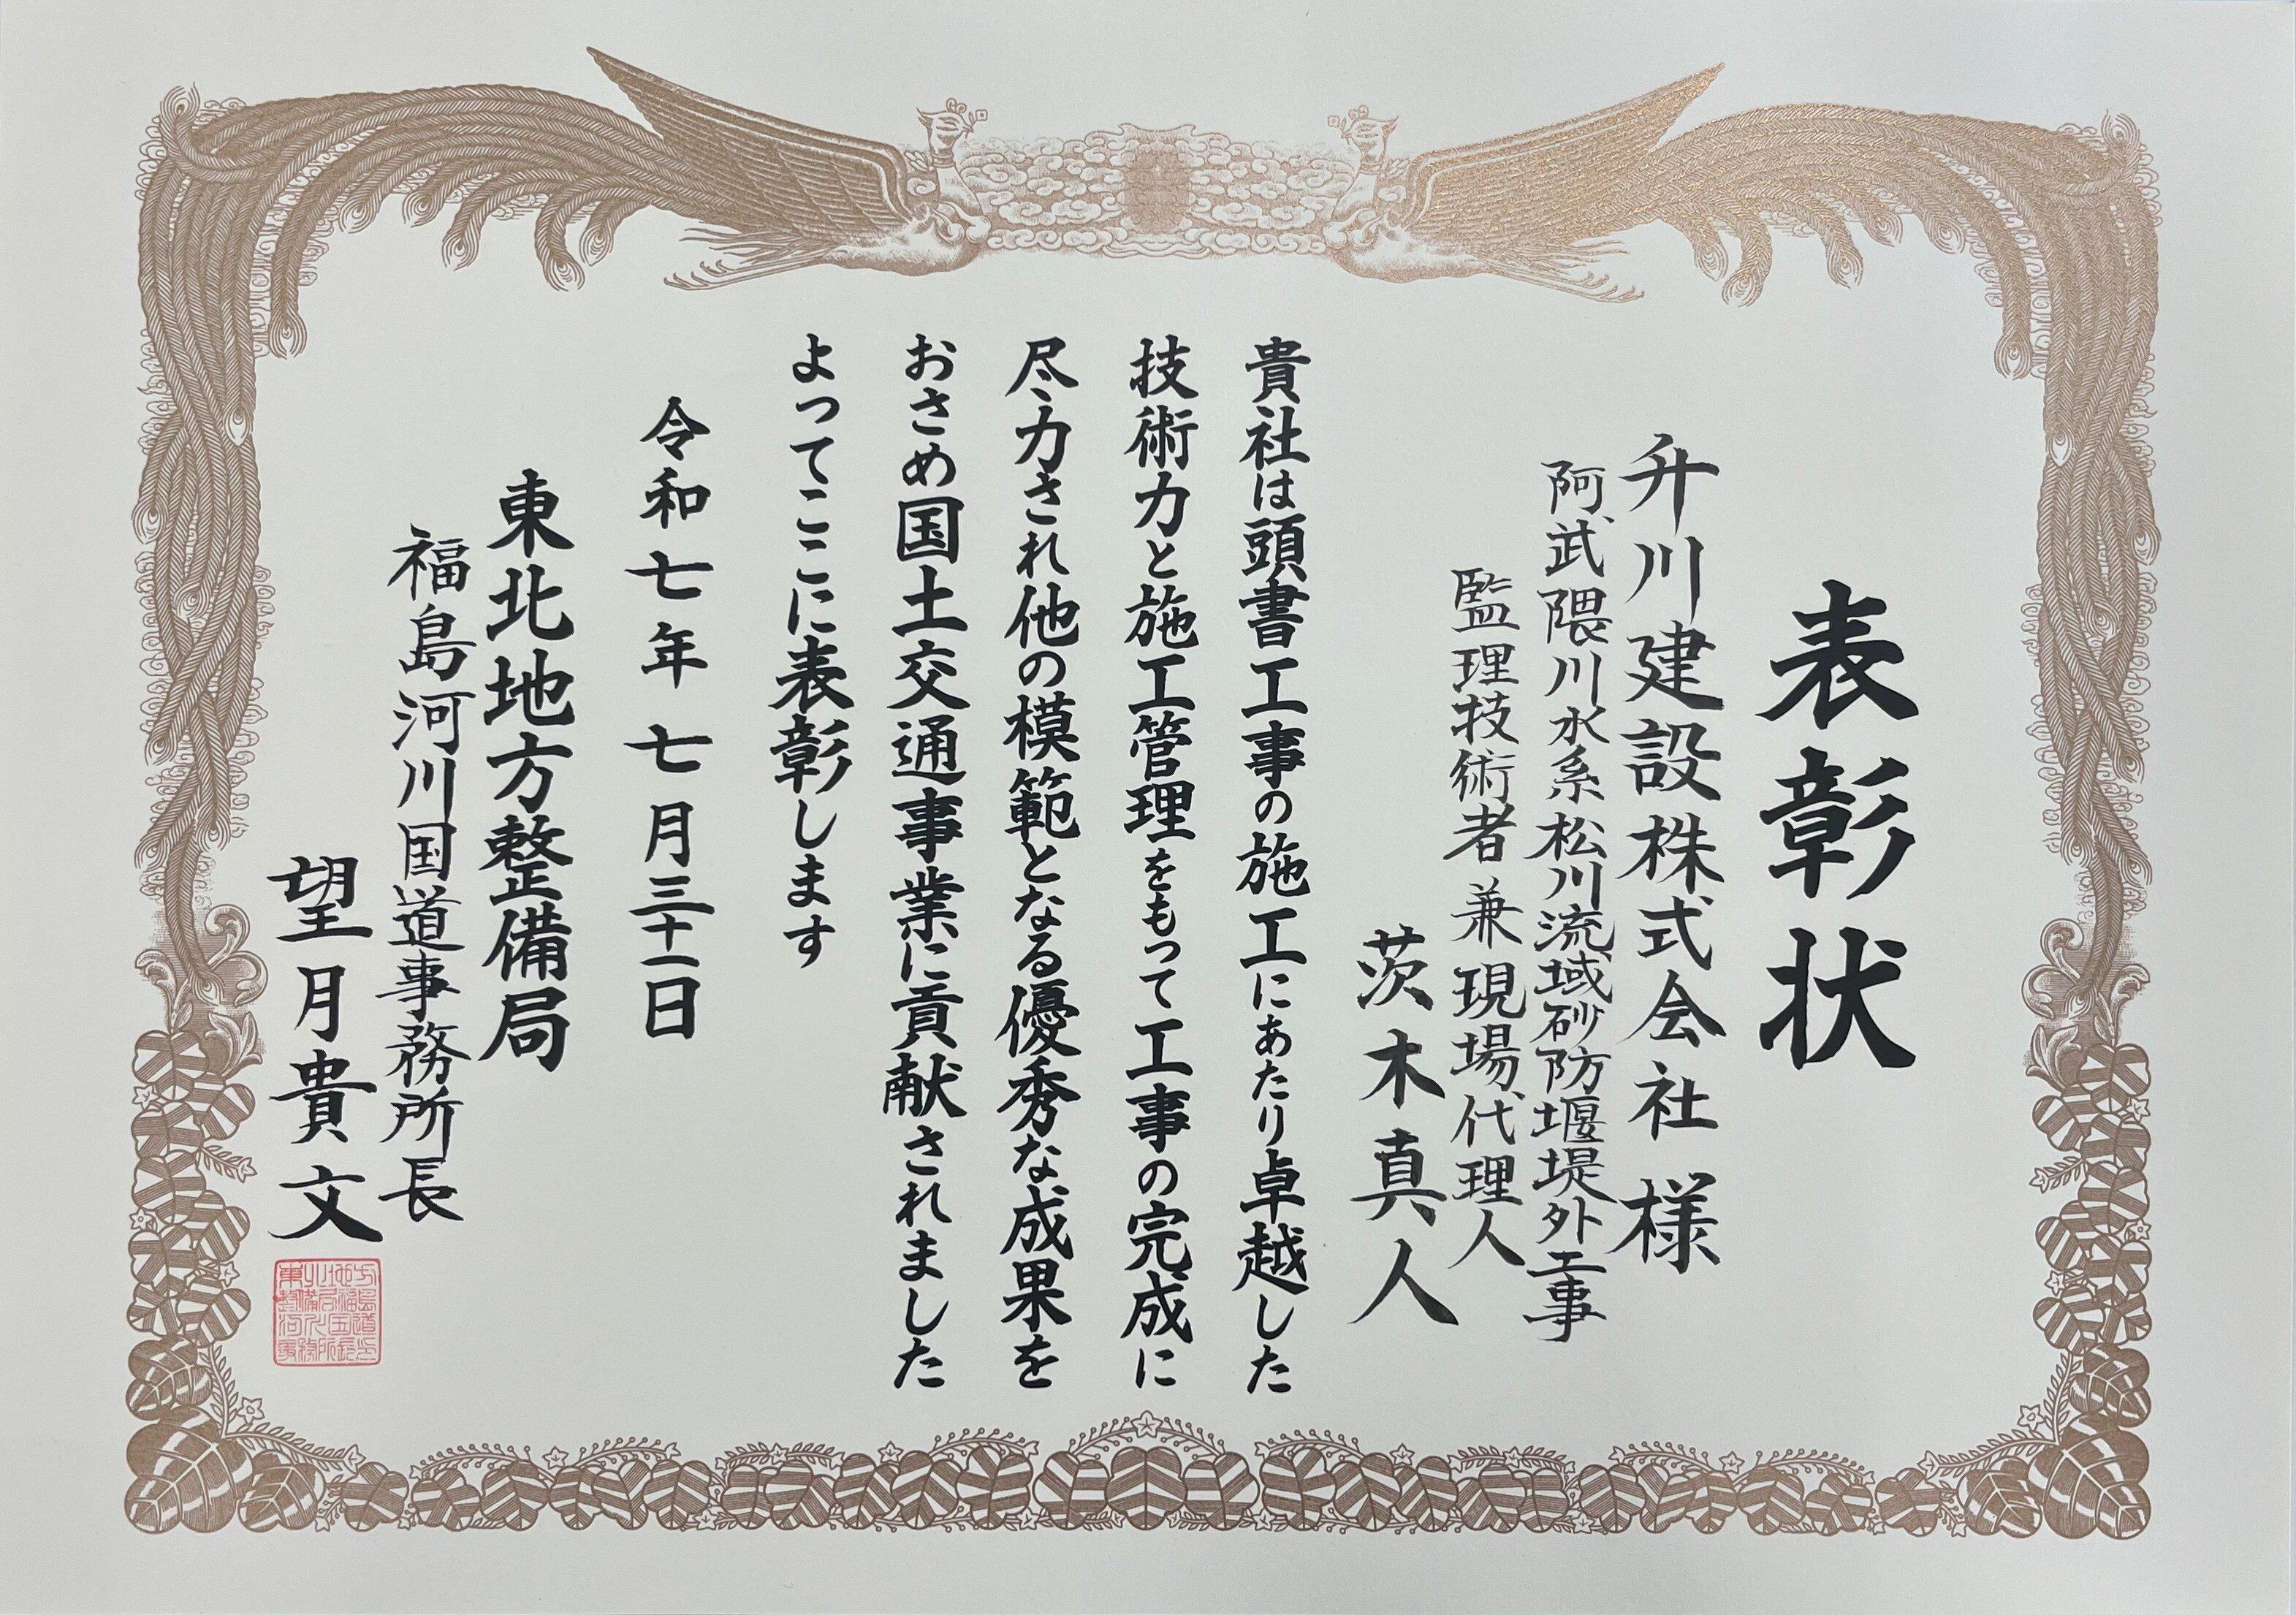 表彰状
升川建設株式会社 様
阿武隈川水系松川流域砂防堰堤外工事
監理技術者 兼 現場代理人
茨木真人
貴社は頭書工事の施工にあたり卓越した
技術力と施工管理をもって工事の完成に
尽力され他の模範となる優秀な成果を
おさめ国土交通事業に貢献されました
よってここに表彰します
令和七年 七月三十一日
東北地方整備局
福島河川国道事務所長
望月貴文